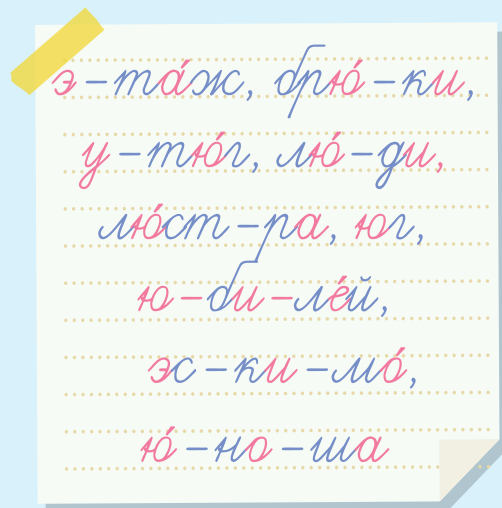 э-та́ж, брю́-ки,
у-тю́г, лю́-ди,
лю́ст-ра, юг,
ю-би-ле́й,
эс-ки-мо́,
ю́-но-ша